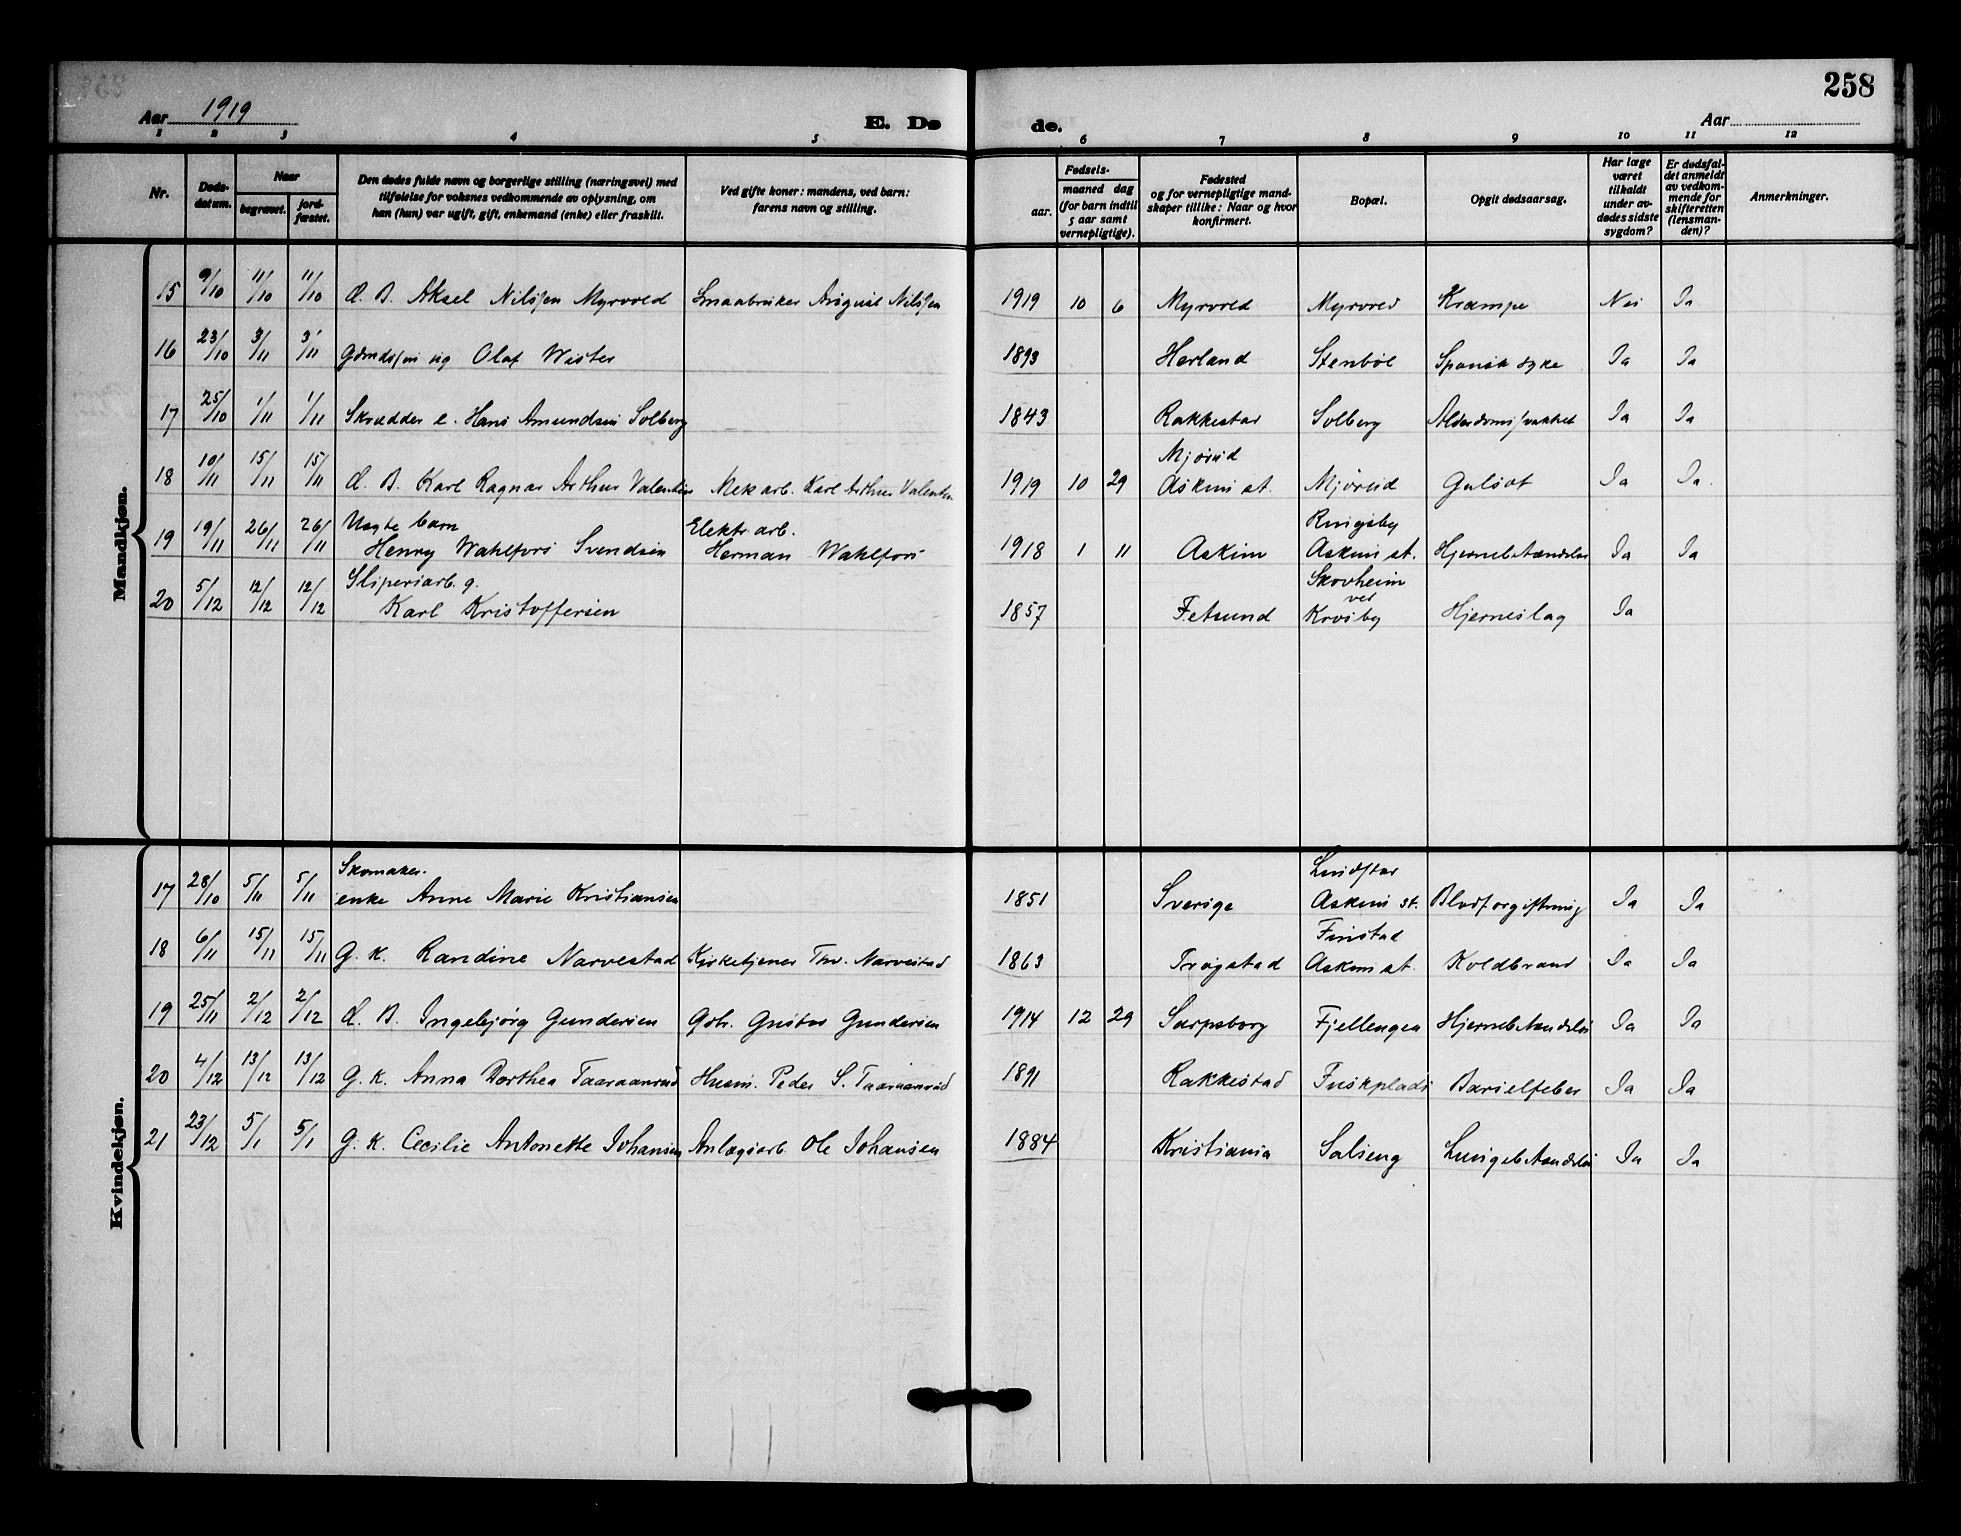 258
Aar 1919
E. Dø
de.
Aar
1 2 3 4 5 6 7 8 9 10 11 12
Nr.
Døds-
datum.
Naar
begravet.
jord-
fæstet.
Den dødes fulde navn og borgerlige stilling (næringsvei) med
tilføielse for voksnes vedkommende av oplysning, om
han (hun) var ugift, gift, enkemand (enke) eller fraskilt.
Ved gifte koner: mandens, ved barn:
farens navn og stilling.
Fødsels-
aar.
maaned dag
(for barn indtil
5 aar samt
vernepligtige).
Fødested
og for vernepligtige mand-
skaper tillike: Naar og hvor
konfirmert.
Bopæl.
Opgit dødsaarsag.
Har læge
været
tilkaldt
under av-
dødes sidste
sygdom?
Er dødsfal-
det anmeldt
av vedkom-
mende for
skifteretten
(lensman-
den)?
Anmerkninger.
Mandkjøn.
15 9/10 11/10 11/10 d. B. Aksel Nilssen Myrvold Smaabruker August Nilssen 1919 10 6 Myrvold Myrvold Krampe Nei Ja
16 23/10 3/11 3/11 Gaardsfor ug Olaf Wister 1893 Herland Stenbøl Spansk syke Ja Ja
17 25/10 1/11 1/11 Skrædder e. Hans Amundsen Solberg 1843 Rakkestad Solberg Alderdomssvakhet Ja Ja
Mjørud
18 10/11 15/11 15/11 d. B. Karl Ragnar Arthur Valentin Mek arb. Karl Arthur Valentin 1919 10 29 Askim st. Mjørud Gulsot Ja Ja.
Uegte barn Elektr. arb. Ringsby
19 19/11 26/11 26/11 Henry Wahlfors Svendsen Herman Wahlfors 1918 1 11 Askim Askim st. Hjernebetændelse Ja Ja
Sliperiarb. g. Skovheim
ved
20 5/12 12/12 12/12 Karl Kristoffersen 1857 Fetsund Krosby Hjerneslag Ja
Kvindekjøn.
Skomaker- Lindstad
17 28/10 5/11 5/11 enke Anne Marie Kristiansen 1851 Sverige Askim st. Blodforgiftning Ja Ja
Finstad
18 6/11 15/11 15/11 G. K. Randine Narvestad Kirketjener Thv. Narvestad 1863 Trøgstad Askim st. Koldbrand Ja Ja
19 25/11 2/12 2/12 d. B. Ingebjørg Gundersen Gbr. Gustav Gundersen 1914 12 29 Sarpsborg Fjellengen Hjernebetændelse Ja Ja
20 4/12 13/12 13/12 G. K. Anna Dorthea Taaraanrud Husm. Peder S. Taaraanrud 1891 Rakkestad Friskplads Barselfeber Ja Ja
21 23/12 5/1 5/1 G. K. Cecilie Antonette Johansen Anlægsarb. Ole Johansen 1884 Kristiania Solseng Lungebetændelse Ja Ja